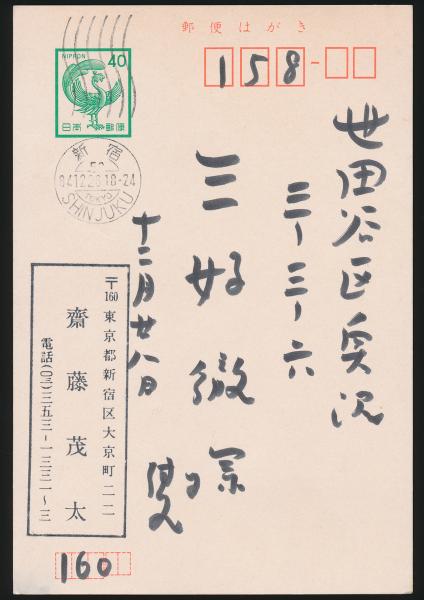 郵便はがき
158-
NIPPON
40
日本郵便
新宿
84.12.28.18-24
TOKYO
SHINJUKU
世田谷区奥沢
三ー三ー六
三好徹
十二月廿八日
〒160 東京都新宿区大京町二二
齋藤茂太
電話(〇三)三五三-一三三一〜三
160